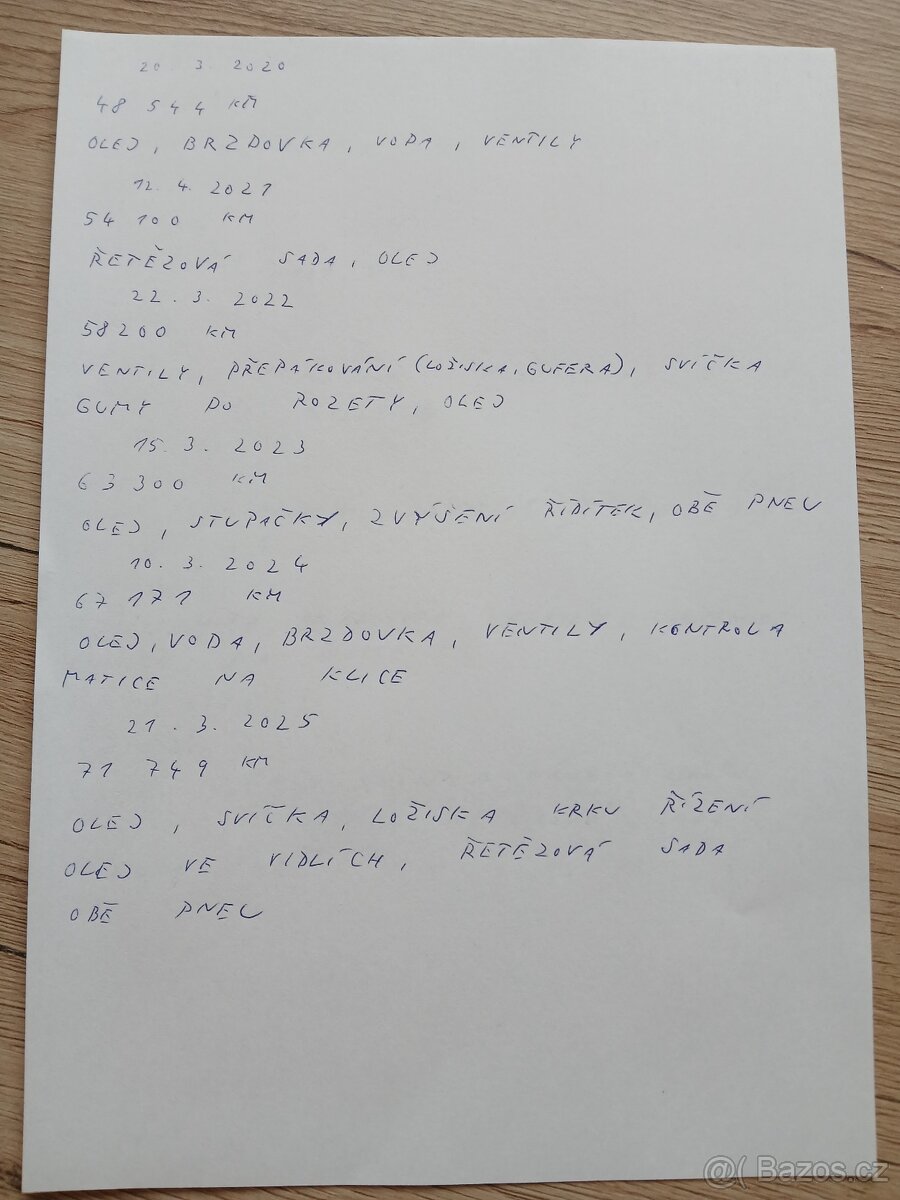 20. 3. 2020
48 544 KM
OLEJ, BRZDOVKA, VODA, VENTILY
12. 4. 2021
54 100 KM
ŘETĚZOVÁ SADA, OLEJ
22. 3. 2022
58200 KM
VENTILY, PŘEPÁKOVÁNÍ (LOŽISKA, GUFERA), SVÍČKA
GUMY DO ROZETY, OLEJ
15. 3. 2023
63 300 KM
OLEJ, STUPAČKY, ZVÝŠENÍ ŘÍDÍTEK, OBĚ PNEU
10. 3. 2024
67 171 KM
OLEJ, VODA, BRZDOVKA, VENTILY, KONTROLA
MATICE NA KLICE
21. 3. 2025
71 749 KM
OLEJ, SVÍČKA, LOŽISKA KRKU ŘÍZENÍ
OLEJ VE VIDLÍCH, ŘETĚZOVÁ SADA
OBĚ PNEU
@( Bazos.cz